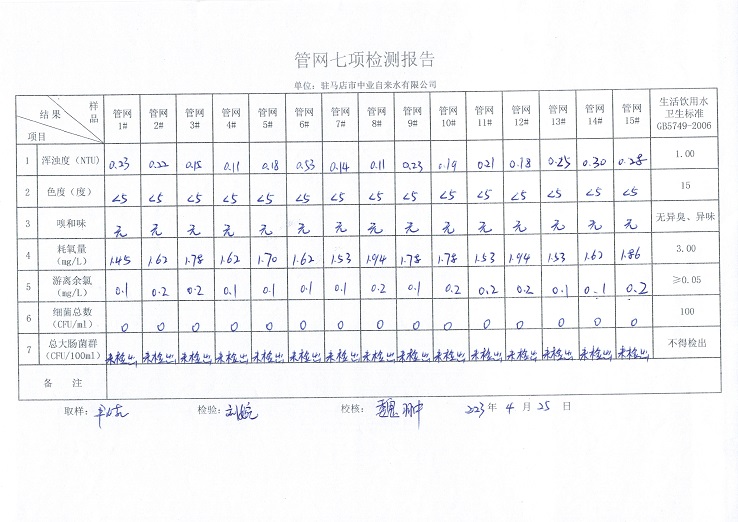 管网七项检测报告
单位：驻马店市中业自来水有限公司
结果 样品 项目 管网1# 管网2# 管网3# 管网4# 管网5# 管网6# 管网7# 管网8# 管网9# 管网10# 管网11# 管网12# 管网13# 管网14# 管网15# 生活饮用水卫生标准GB5749-2006
1 浑浊度（NTU） 0.23 0.22 0.15 0.11 0.18 0.53 0.14 0.11 0.23 0.19 0.21 0.18 0.25 0.30 0.28 1.00
2 色度（度） <5 <5 <5 <5 <5 <5 <5 <5 <5 <5 <5 <5 <5 <5 <5 15
3 嗅和味 无 无 无 无 无 无 无 无 无 无 无 无 无 无 无 无异臭、异味
4 耗氧量（mg/L） 1.45 1.62 1.78 1.62 1.70 1.62 1.53 1.94 1.78 1.78 1.53 1.94 1.53 1.62 1.86 3.00
5 游离余氯（mg/L） 0.1 0.2 0.2 0.1 0.1 0.1 0.1 0.2 0.1 0.2 0.2 0.2 0.1 0.1 0.2 ≥0.05
6 细菌总数（CFU/ml） 0 0 0 0 0 0 0 0 0 0 0 0 0 0 0 100
7 总大肠菌群（CFU/100ml） 未检出 未检出 未检出 未检出 未检出 未检出 未检出 未检出 未检出 未检出 未检出 未检出 未检出 未检出 未检出 不得检出
备 注
取样： 检验： 校核： 2023 年 4 月 25 日